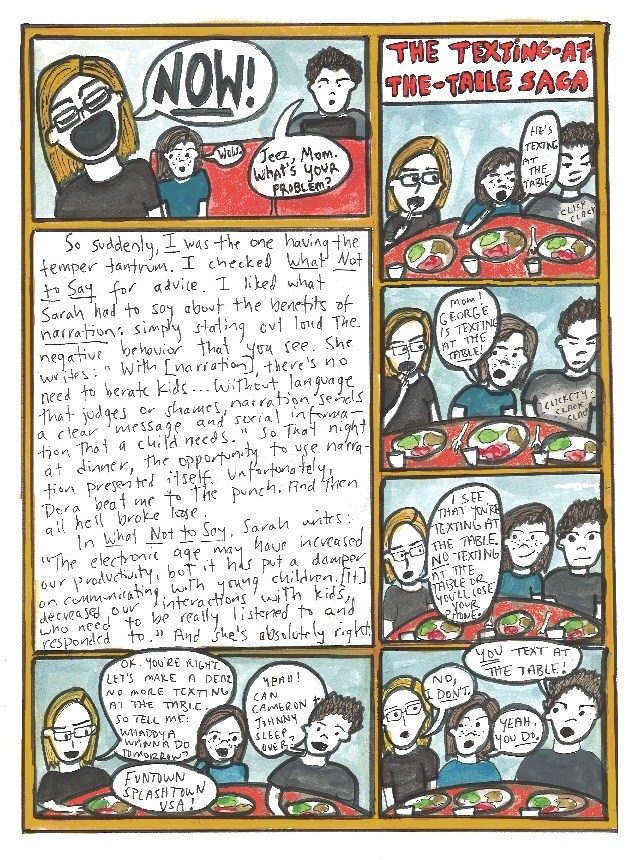 NOW!
WOW.
Jeez, Mom.
WHAT'S YOUR
PROBLEM?
So suddenly, I was the one having the
temper tantrum. I checked What Not
to Say for advice. I liked what
Sarah had to say about the benefits of
narration: simply stating out loud the
negative behavior that you see. She
writes: "With [narration], there's no
need to berate kids... Without language
that judges or shames, narration sends
a clear message and social informa-
tion that a child needs." So that night
at dinner, the opportunity to use narra-
tion presented itself. Unfortunately,
Dora beat me to the punch. And then
all hell broke lose.
In What Not to Say, Sarah writes:
"The electronic age may have increased
our productivity, but it has put a damper
on communicating with young children. [It]
decreased our interactions with kids,
who need to be really listened to and
responded to." And she's absolutely right.
THE TEXTING-AT-
THE-TABLE SAGA
HE'S
TEXTING
AT
THE
TABLE
CLICK
CLACK
MOM!
GEORGE
IS TEXTING
AT THE
TABLE!
CLICKETY-
CLACK
CLACK
I SEE
THAT YOU'RE
TEXTING AT
THE TABLE.
NO TEXTING
AT THE
TABLE OR
YOU'LL LOSE
YOUR
PHONE.
YOU TEXT AT
THE TABLE!
NO,
I DON'T.
YEAH.
YOU DO.
OK. YOU'RE RIGHT.
LET'S MAKE A DEAL
NO MORE TEXTING
AT THE TABLE.
SO TELL ME:
WHADDYA
WANNA DO
TOMORROW?
FUNTOWN
SPLASHTOWN
USA!
YEAH!
CAN
CAMERON +
JOHNNY
SLEEP
OVER?